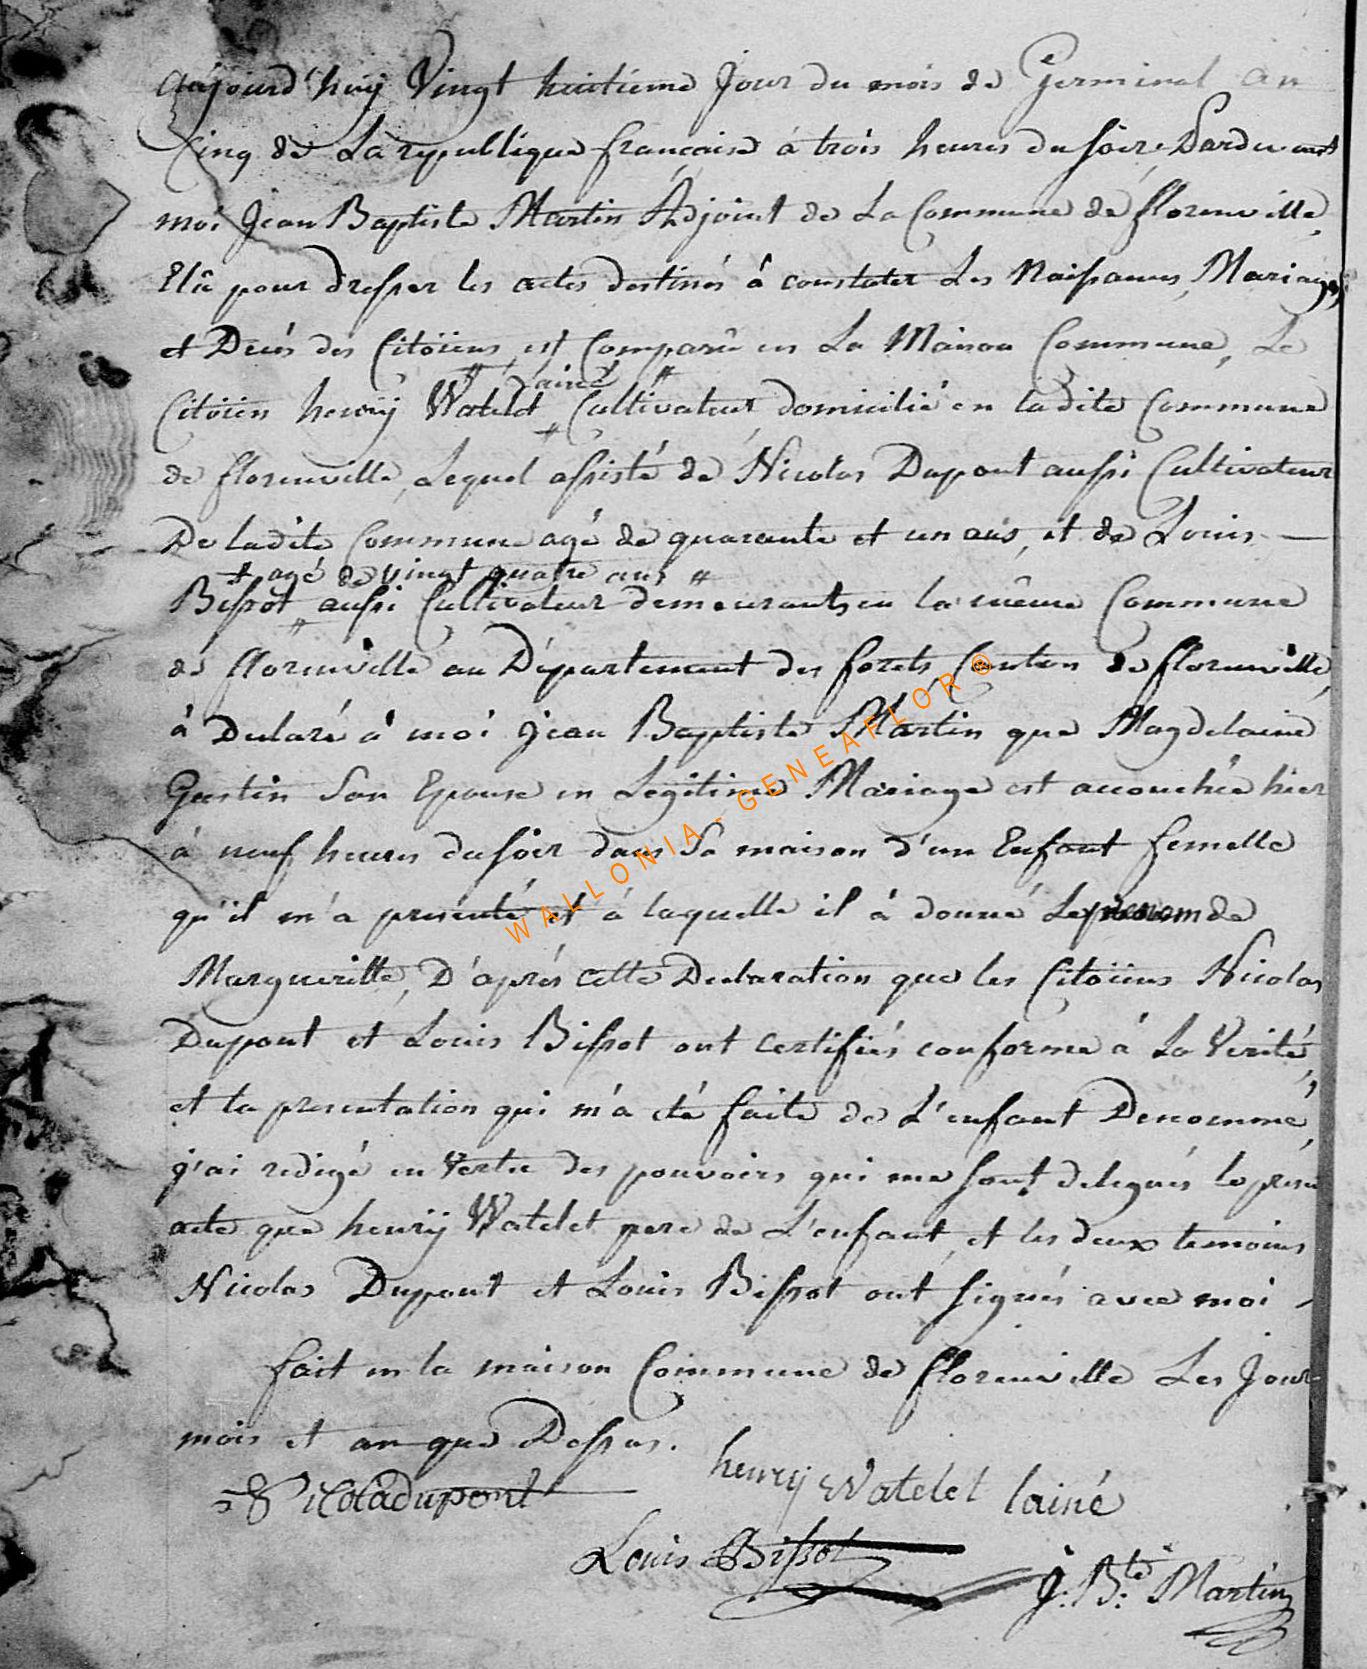 Aujourd'huÿ Vingt huitieme Jour du mois de Germinal an
Cinq de La republique francaise à trois heures du soir, Pardevant
moi Jean Baptiste Martin Adjoint de La Commune de florenville,
Elû pour dresser les actes destinés à constater Les Naissances, Mariages,
et Decés des Citoïens, est Comparû en La Maison Commune, Le
# l'ainé #
Citoïen henrÿ Watelet # Cultivateur domicilié en ladite Commune
de florenville, Lequel assisté de Nicolas Dupont aussi Cultivateur
De ladite Commune agé de quarante et un ans, et de Louis —
# agé de vingt quatre ans #
Bissot # aussi Cultivateur demeurants en la même Commune
de florenville au Département des forets, Canton de florenville,
à Declaré à moi Jean Baptiste Martin que Magdelaine
Gustin Son Epouse en Legitime Mariage est accouchée hier
à neuf heures du soir dans Sa maison d'un Enfant femelle
qu'il m'a presenté et à laquelle il à donné Le prenom de
Margueritte, D'aprés cette Declaration que les Citoïens Nicolas
Dupont et Louis Bissot ont certifiés conforme à La Verité,
et la presentation qui m'a été faite de L'enfant Denommé,
j'ai redigé en Vertu des pouvoirs qui me sont delegués le prése
acte que henrÿ Watelet pere de L'enfant, et les deux temoins
Nicolas Dupont et Louis Bissot ont signés avec moi
fait en la maison Commune de florenville Les Jour
mois et an que Dessus.
henrÿ Watelet lainé
Nicola dupont
Louis Bissot
J: B:te Martin
WALLONIA - GENEAFLOR ©